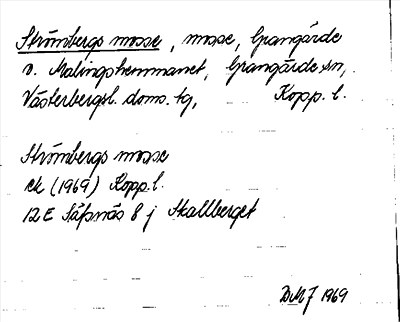 Strömbergs mosse, mosse, Grangärde
v. Malingshemmanet, Grangärde sn,
Västerbergsl. doms. tg, Kopp. l.
Strömbergs mosse
ek (1969) Kopp. l.
12E Säfsnäs 8 j Skallberget
DMJ 1969